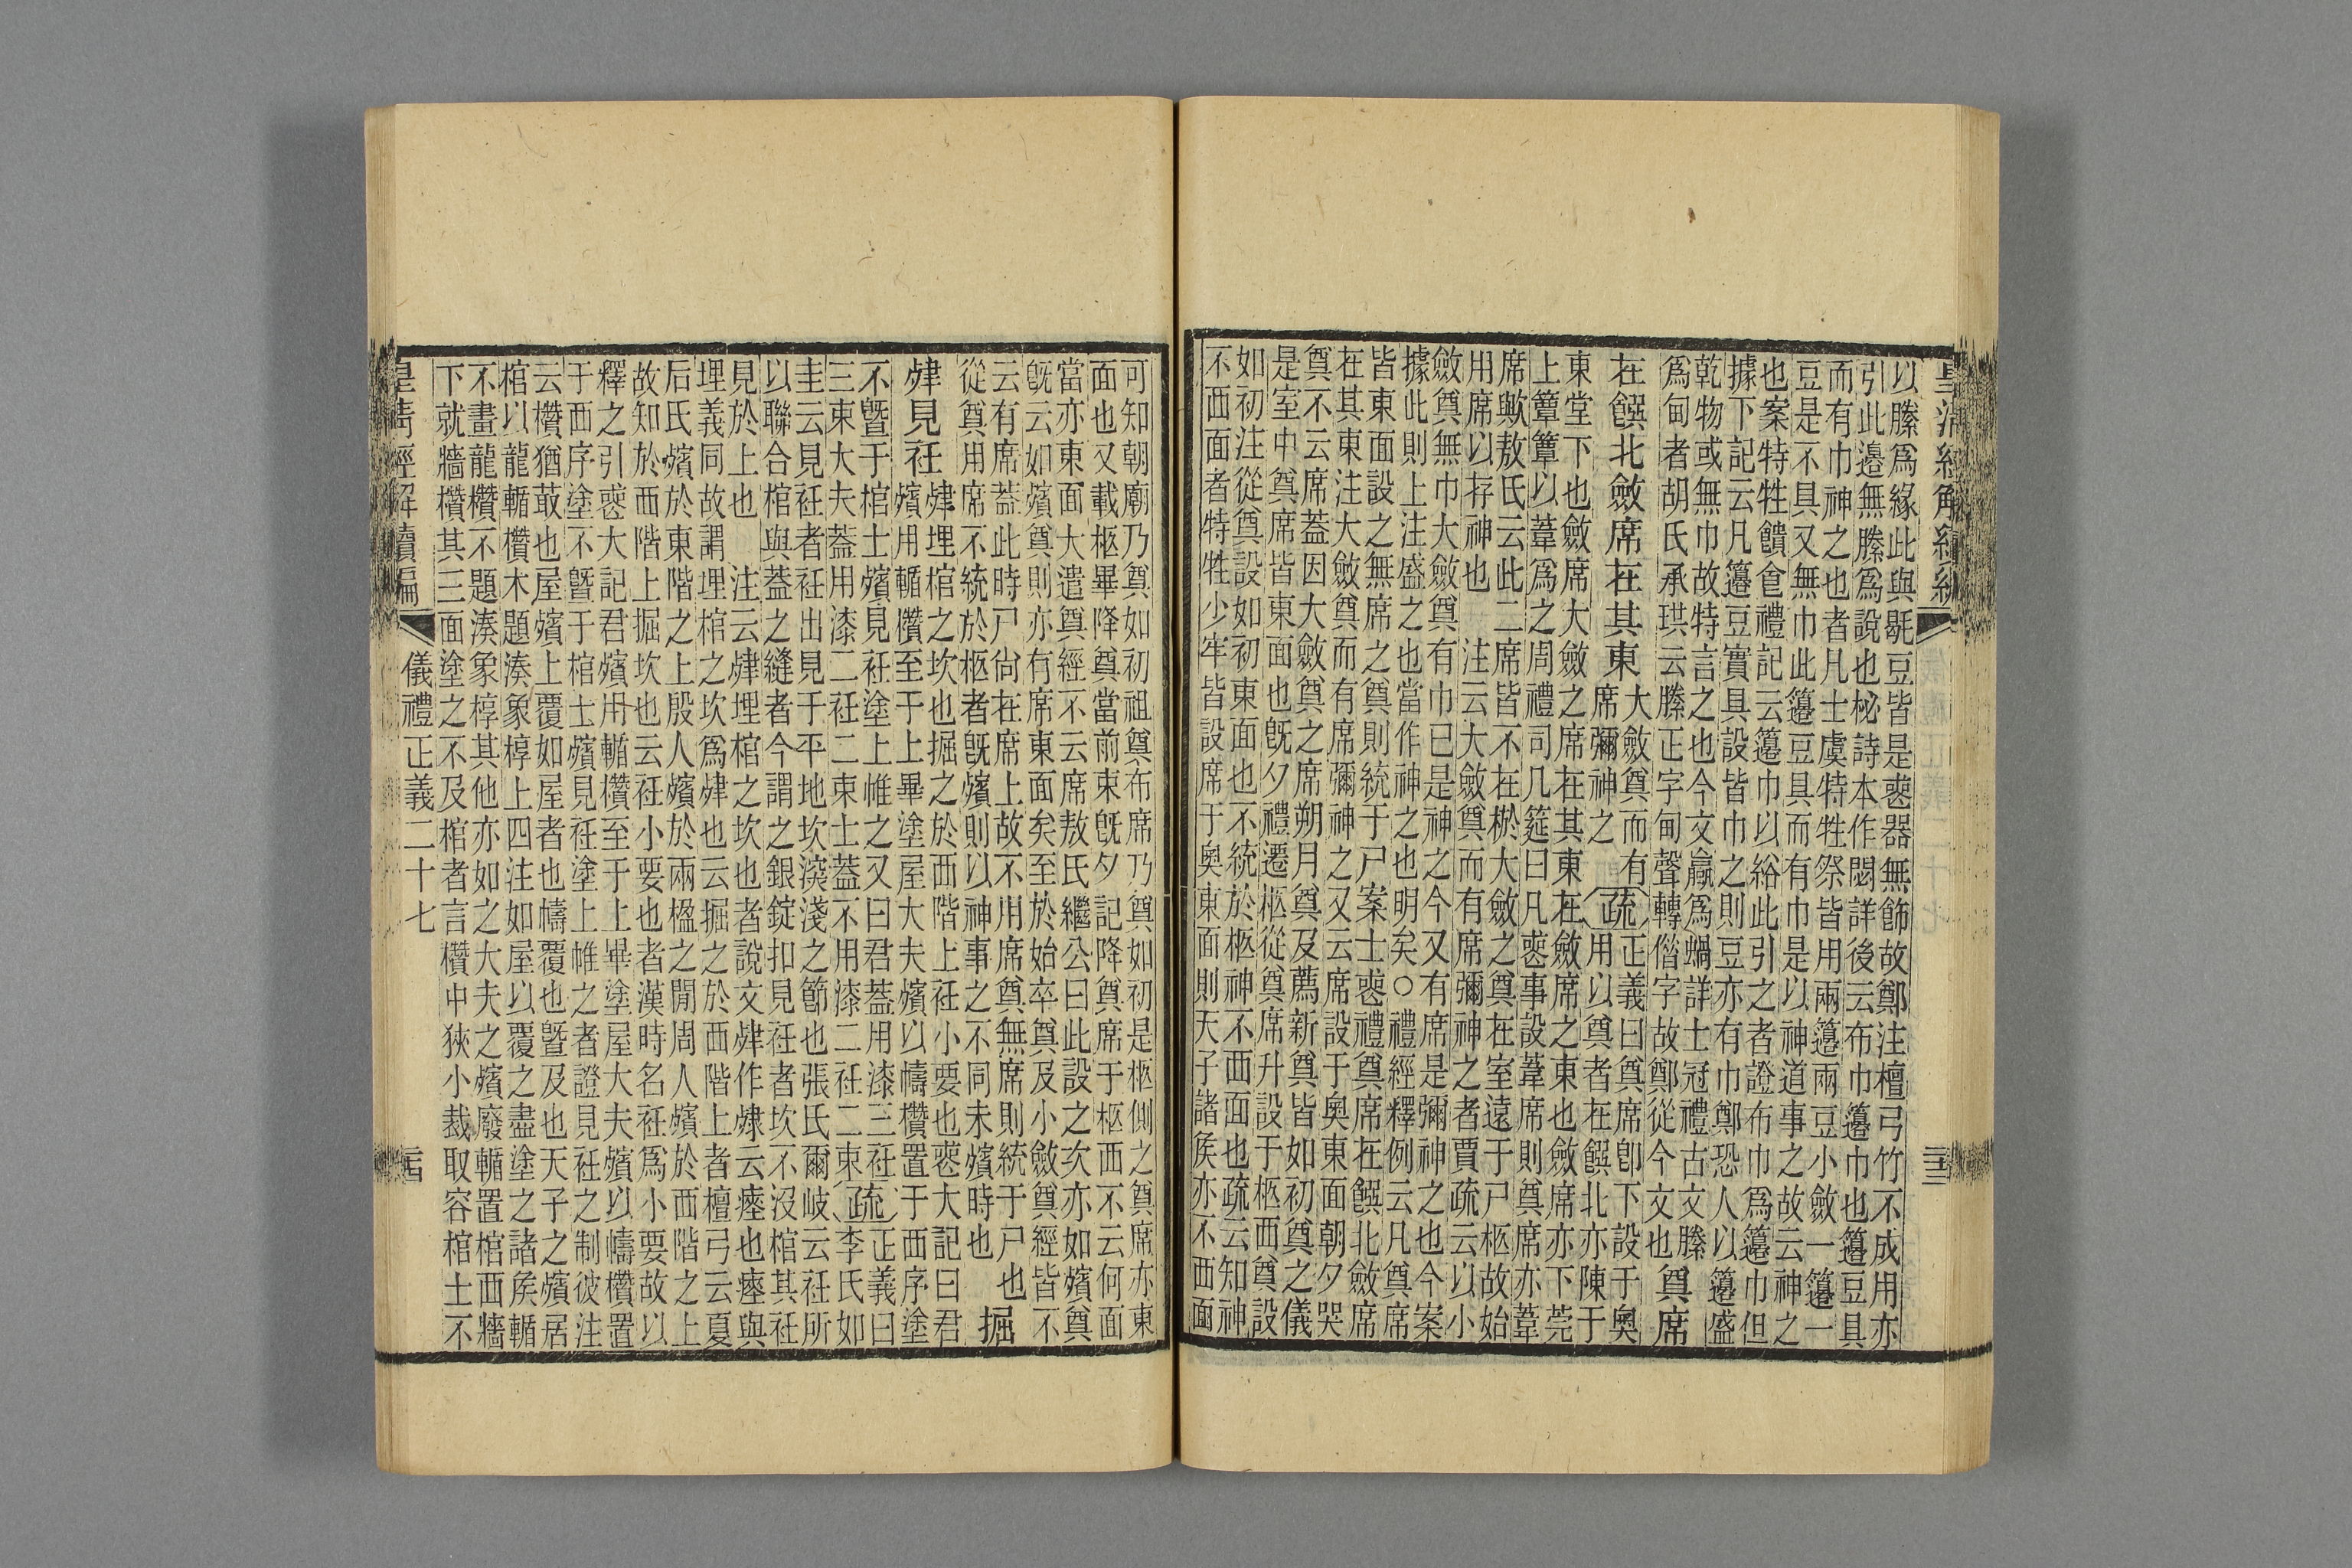 以縢爲緣此與毼豆皆是䘮器無飾故鄭注檀弓竹不成用亦
引此邉無縢爲說也柲詩本作閟詳後云布巾籩巾也籩豆具
而有巾神之也者凡士虞特牲祭皆用兩籩兩豆小斂一籩一
豆是不具又無巾此籩豆具而有巾是以神道事之故云神之
也案特牲饋食禮記云籩巾以綌此引之者證布巾爲籩巾但
據下記云凡籩豆實具設皆巾之則豆亦有巾鄭恐人以籩盛
乾物或無巾故特言之也今文蠃爲蝸詳士冠禮古文縢
爲甸者胡氏承珙云縢正字甸聲轉偕字故鄭從今文也
奠席
在饌北斂席在其東
大斂奠而有
席彌神之
疏
正義曰奠席卽下設于奧
用以奠者在饌北亦陳于
東堂下也斂席大斂之席在其東在斂席之東也斂席亦下莞
上簟簟以葦爲之周禮司几筵曰凡䘮事設葦席則奠席亦葦
席歟敖氏云此二席皆不在棜大斂之奠在室遠于尸柩故始
用席以存神也 注云大斂奠而有席彌神之者賈疏云以小
斂奠無巾大斂奠有巾已是神之今又有席是彌神之也今案
據此則上注盛之也當作神之也明矣○禮經釋例云凡奠席
皆東面設之無席之奠則統于尸案士䘮禮奠席在饌北斂席
在其東注大斂奠而有席彌神之又云席設于奧東面朝夕哭
奠不云席蓋因大斂奠之席朔月奠及薦新奠皆如初奠之儀
是室中奠席皆東面也旣夕禮遷柩從奠席升設于柩西奠設
如初注從奠設如初東面也不統於柩神不西面也疏云知神
不西面者特牲少牢皆設席于奧東面則天子諸矦亦不西面
可知朝廟乃奠如初祖奠布席乃奠如初是柩側之奠席亦東
面也又載柩畢降奠當前束旣夕記降奠席于柩西不云何面
當亦東面大遣奠經不云席敖氏繼公曰此設之次亦如殯奠
旣云如殯奠則亦有席東面矣至於始卒奠及小斂奠經皆不
云有席蓋此時尸尙在席上故不用席奠無席則統于尸也
從奠用席不統於柩者旣殯則以神事之不同未殯時也
掘
肂見衽
肂埋棺之坎也掘之於西階上衽小要也䘮大記曰君
殯用輴欑至于上畢塗屋大夫殯以幬欑置于西序塗
不曁于棺士殯見衽塗上帷之又曰君蓋用漆三衽
三束大夫蓋用漆二衽二束士蓋不用漆二衽二束
疏
正義曰
李氏如
圭云見衽者衽出見于平地坎㴱淺之節也張氏爾岐云衽所
以聯合棺與蓋之縫者今謂之銀錠扣見衽者坎不沒棺其衽
見於上也 注云肂埋棺之坎也者說文肂作𣨛云瘞也瘞與
埋義同故謂埋棺之坎爲肂也云掘之於西階上者檀弓云夏
后氏殯於東階之上殷人殯於兩楹之閒周人殯於西階之上
故知於西階上掘坎也云衽小要也者漢時名衽爲小要故以
釋之引䘮大記君殯用輴欑至于上畢塗屋大夫殯以幬欑置
于西序塗不曁于棺士殯見衽塗上帷之者證見衽之制彼注
云欑猶菆也屋殯上覆如屋者也幬覆也曁及也天子之殯居
棺以龍輴欑木題湊象椁上四注如屋以覆之盡塗之諸矦輴
不畫龍欑不題湊象椁其他亦如之大夫之殯廢輴置棺西牆
下就牆欑其三面塗之不及棺者言欑中狹小裁取容棺士不
皇清經解續編
儀禮正義二十七